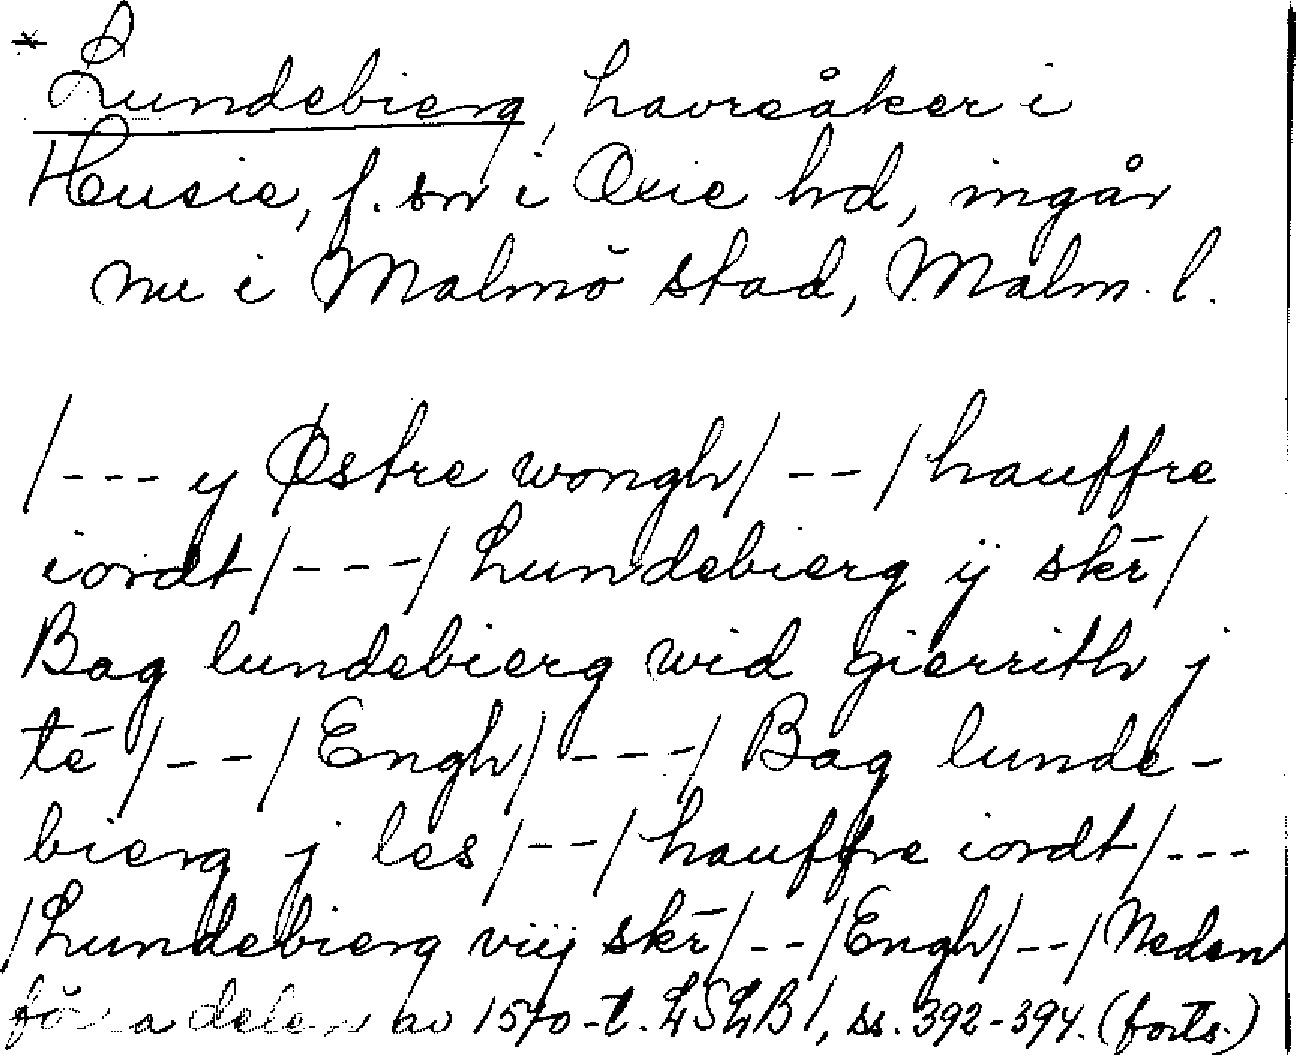 * Lundebierg, havreåker i
Husie, f. sn i Oxie hd, ingår
nu i Malmö stad, Malm. l.
/--- y Østre wongh/ -- / hauffre
iordt / --- / Lundebierg ij skē /
Bag lundebierg wid gierrith j
tē / -- / Engh / --- / Bag lunde-
bierg j les / -- / hauffre iordt / ---
/ Lundebierg viij skē / -- / Engh / -- / Neden
förra delen av 1570-t. LSLB 1, ss. 392-394. (forts.)